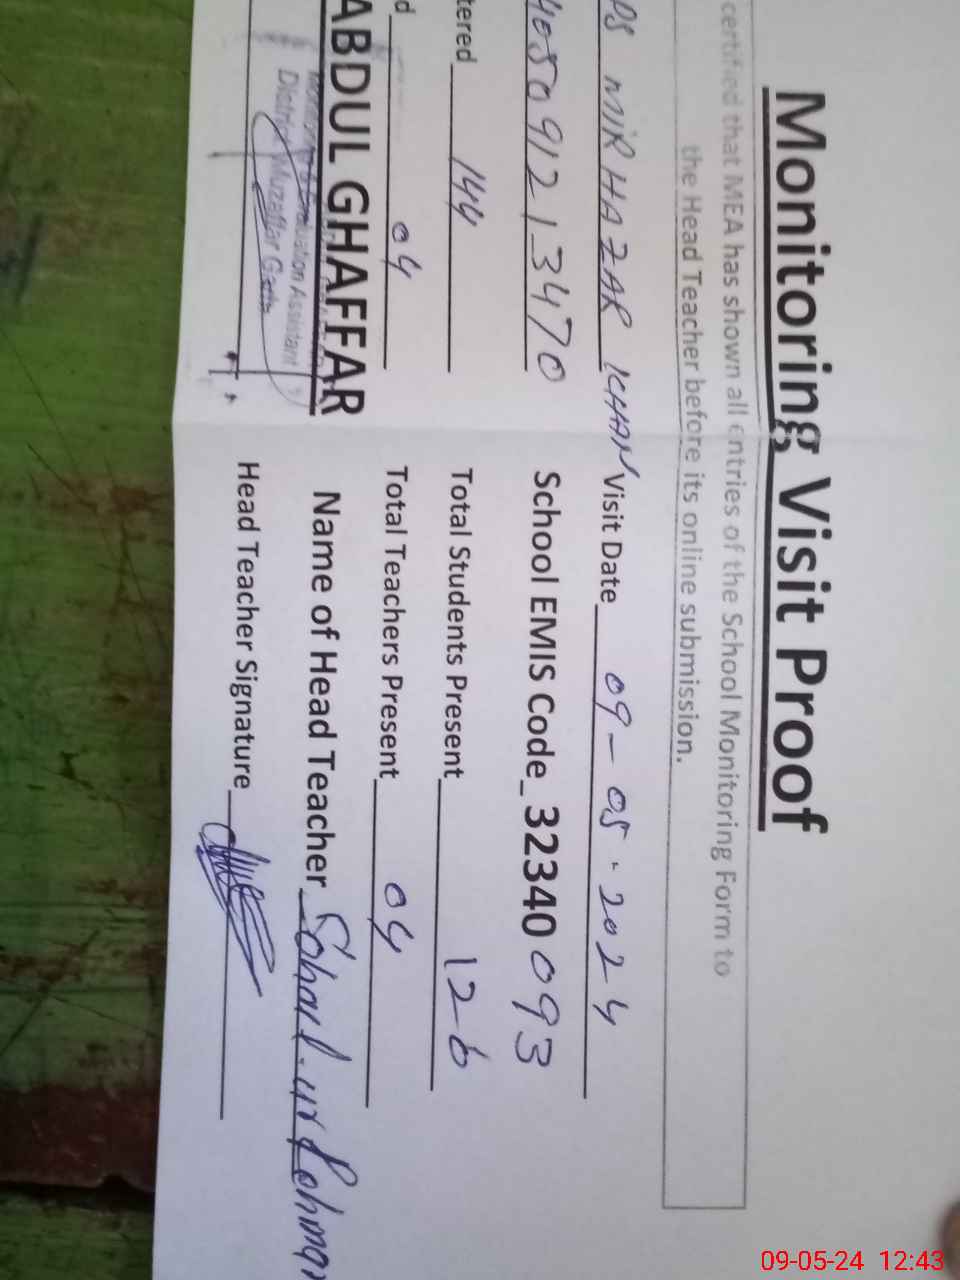 Monitoring Visit Proof
certified that MEA has shown all entries of the School Monitoring Form to
the Head Teacher before its online submission.
PS MIR HAZAR KHAN Visit Date 09-05-2024
405091213470 School EMIS Code_32340 093
tered 144 Total Students Present 126
d 04 Total Teachers Present 04
ABDUL GHAFFAR Name of Head Teacher Sohail.ur Rehman
Monitoring & Evaluation Assistant
District Muzaffar Garh
Head Teacher Signature
09-05-24 12:43